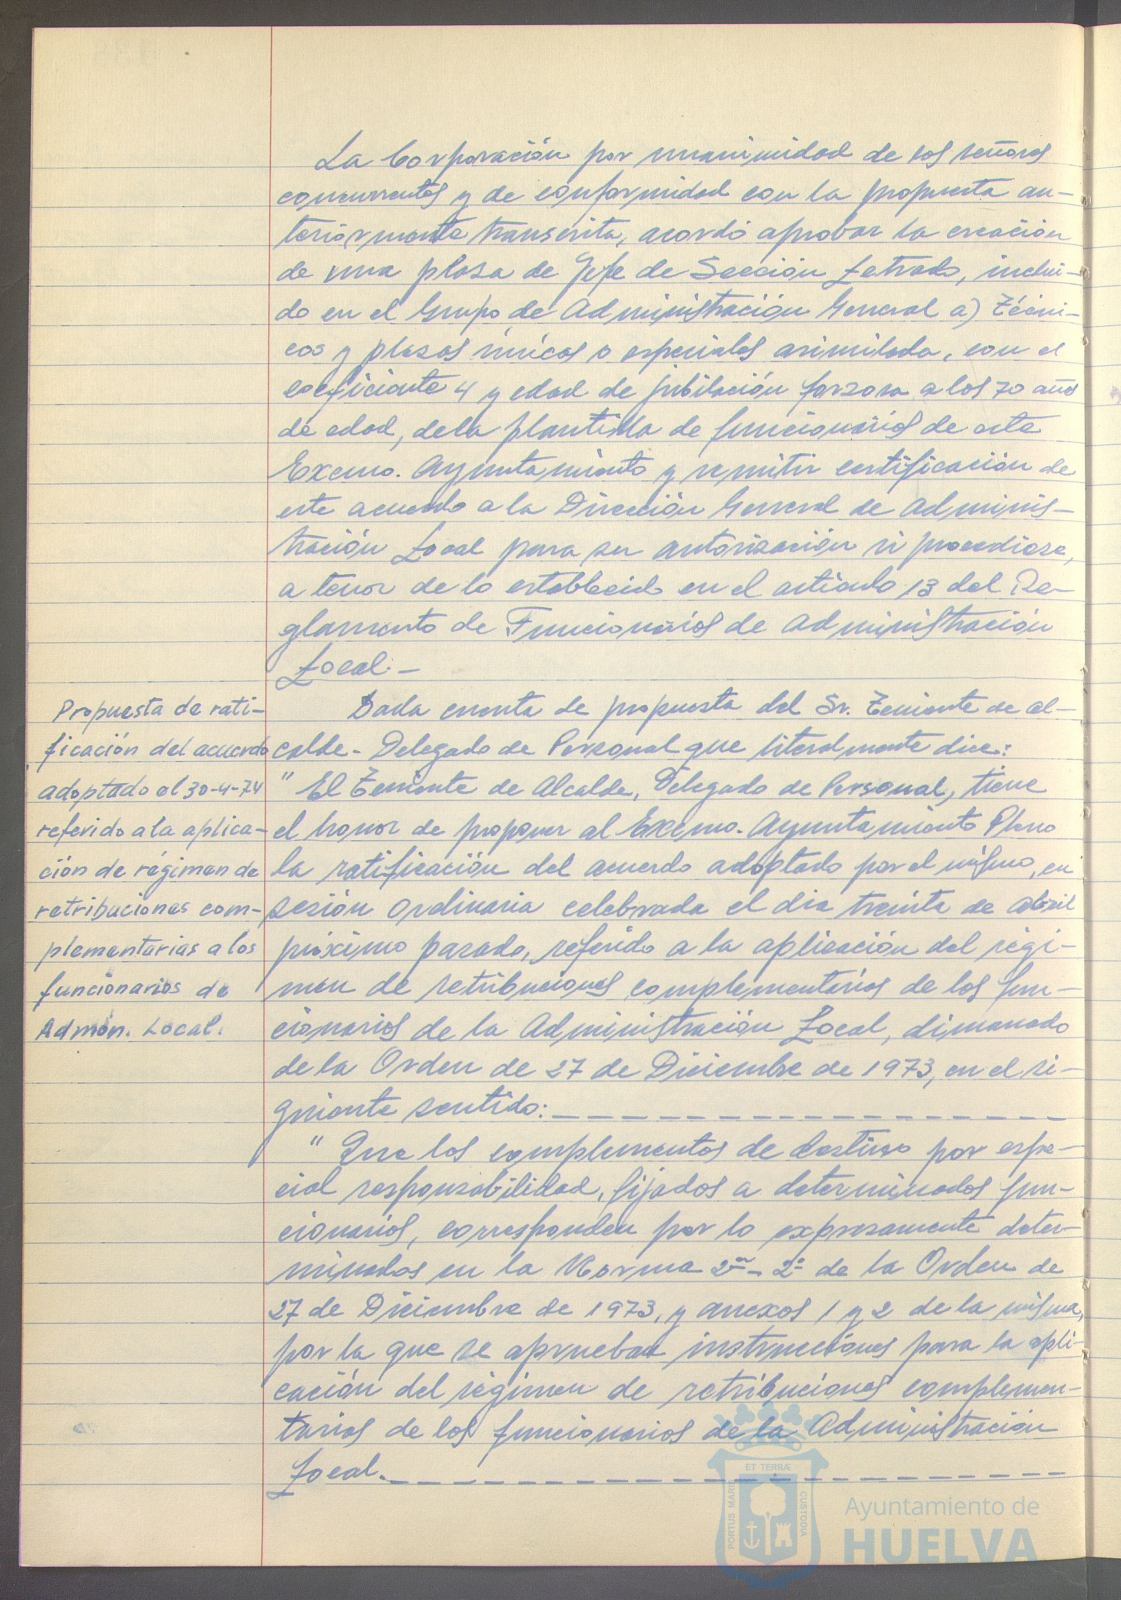 La Corporación por unanimidad de los señores
concurrentes y de conformidad con la propuesta an-
teriormente transcrita, acordó aprobar la creación
de una plaza de Jefe de Sección Letrado, inclui-
do en el Grupo de Administración General a) Técni-
cos y plazas únicas o especiales asimilada, con el
coeficiente 4 y edad de jubilación forzosa a los 70 años
de edad, de la plantilla de funcionarios de este
Excmo. Ayuntamiento y remitir certificación de
este acuerdo a la Dirección General de Adminis-
tración Local para su autorización si procediese,
a tenor de lo establecido en el artículo 13 del Re-
glamento de Funcionarios de Administración
Local.-
Propuesta de rati-
ficación del acuerdo
adoptado el 30-4-74
referido a la aplica-
ción de régimen de
retribuciones com-
plementarias a los
funcionarios de
Admon. Local.
Dada cuenta de propuesta del Sr. Teniente de al-
calde-Delegado de Personal que literalmente dice:
" El Teniente de Alcalde, Delegado de Personal, tiene
el honor de proponer al Excmo. Ayuntamiento Pleno
la ratificación del acuerdo adoptado por el mismo, en
sesión ordinaria celebrada el dia treinta de abril
próximo pasado, referido a la aplicación del régi-
men de retribuciones complementarias de los fun-
cionarios de la Administración Local, dimanado
de la Orden de 27 de Diciembre de 1973, en el si-
guiente sentido:
" Que los complementos de destino por espe-
cial responsabilidad, fijados a determinados fun-
cionarios, corresponden por lo expresamente deter-
minados en la Norma 2ª-2ª de la Orden de
27 de Diciembre de 1973, y anexos 1 y 2 de la misma,
por la que se aprueban instrucciones para la apli-
cación del régimen de retribuciones complemen-
tarias de los funcionarios de la Administración
Local.
ET TERRÆ
PORTUS MARIS
CUSTODIA
Ayuntamiento de
HUELVA